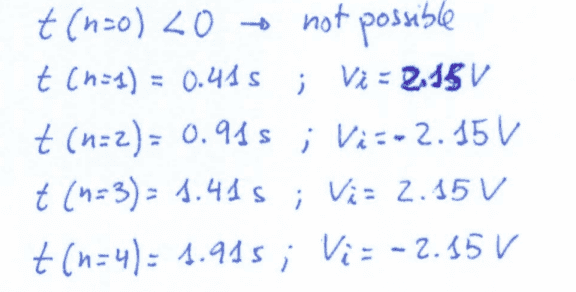 t (n=0) < 0 → not possible
t (n=1) = 0.41 s ; Vi = 2.15 V
t (n=2) = 0.91 s ; Vi = - 2.15 V
t (n=3) = 1.41 s ; Vi = 2.15 V
t (n=4) = 1.91 s ; Vi = - 2.15 V